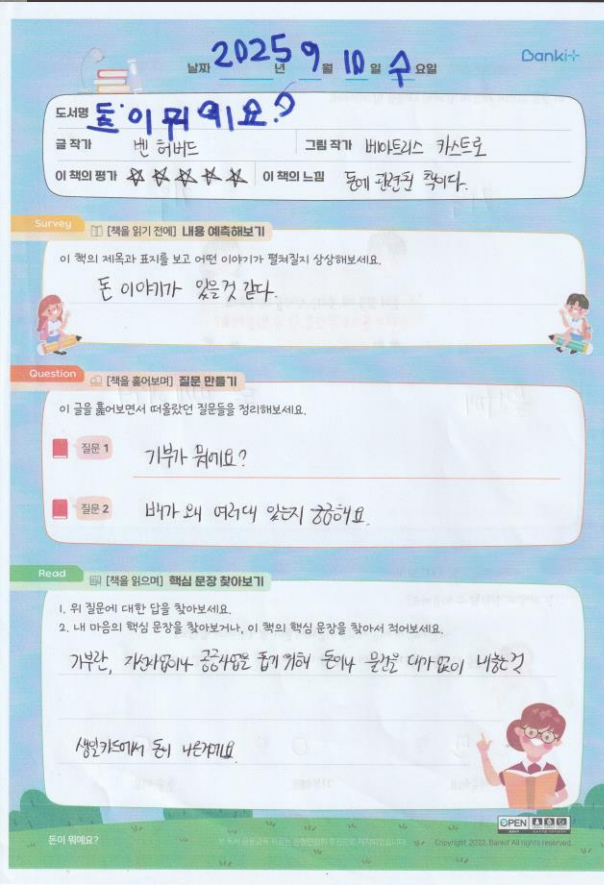 날짜 2025년 9월 10일 수요일
Banki
도서명 돈이 뭐예요?
글 작가 벤 허버드 그림 작가 베아트리스 카스트로
이 책의 평가 ☆☆☆☆☆ 이 책의 느낌 돈에 관련된 책이다.
Survey [책을 읽기 전에] 내용 예측해보기
이 책의 제목과 표지를 보고 어떤 이야기가 펼쳐질지 상상해보세요.
돈 이야기가 있을것 같다.
Question [책을 훑어보며] 질문 만들기
이 글을 훑어보면서 떠올랐던 질문들을 정리해보세요.
질문 1 기부가 뭐에요?
질문 2 배가 왜 여러대 있는지 궁금해요.
Read [책을 읽으며] 핵심 문장 찾아보기
1. 위 질문에 대한 답을 찾아보세요.
2. 내 마음의 핵심 문장을 찾아보거나, 이 책의 핵심 문장을 찾아서 적어보세요.
기부란, 자선사업이나 공공사업을 돕기 위해 돈이나 물건을 대가없이 내놓는 것
생일카드에서 돈이 나온거에요.
OPEN
돈이 뭐예요?
Copyright 2022. Banki+ All rights reserved.